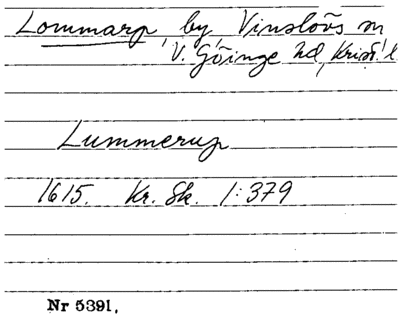 Lommarp, by, Vinslövs sn
V. Göinge hd, Krist. l.
Lummerup
1615. Kr. Sk. 1:379
Nr 5391.